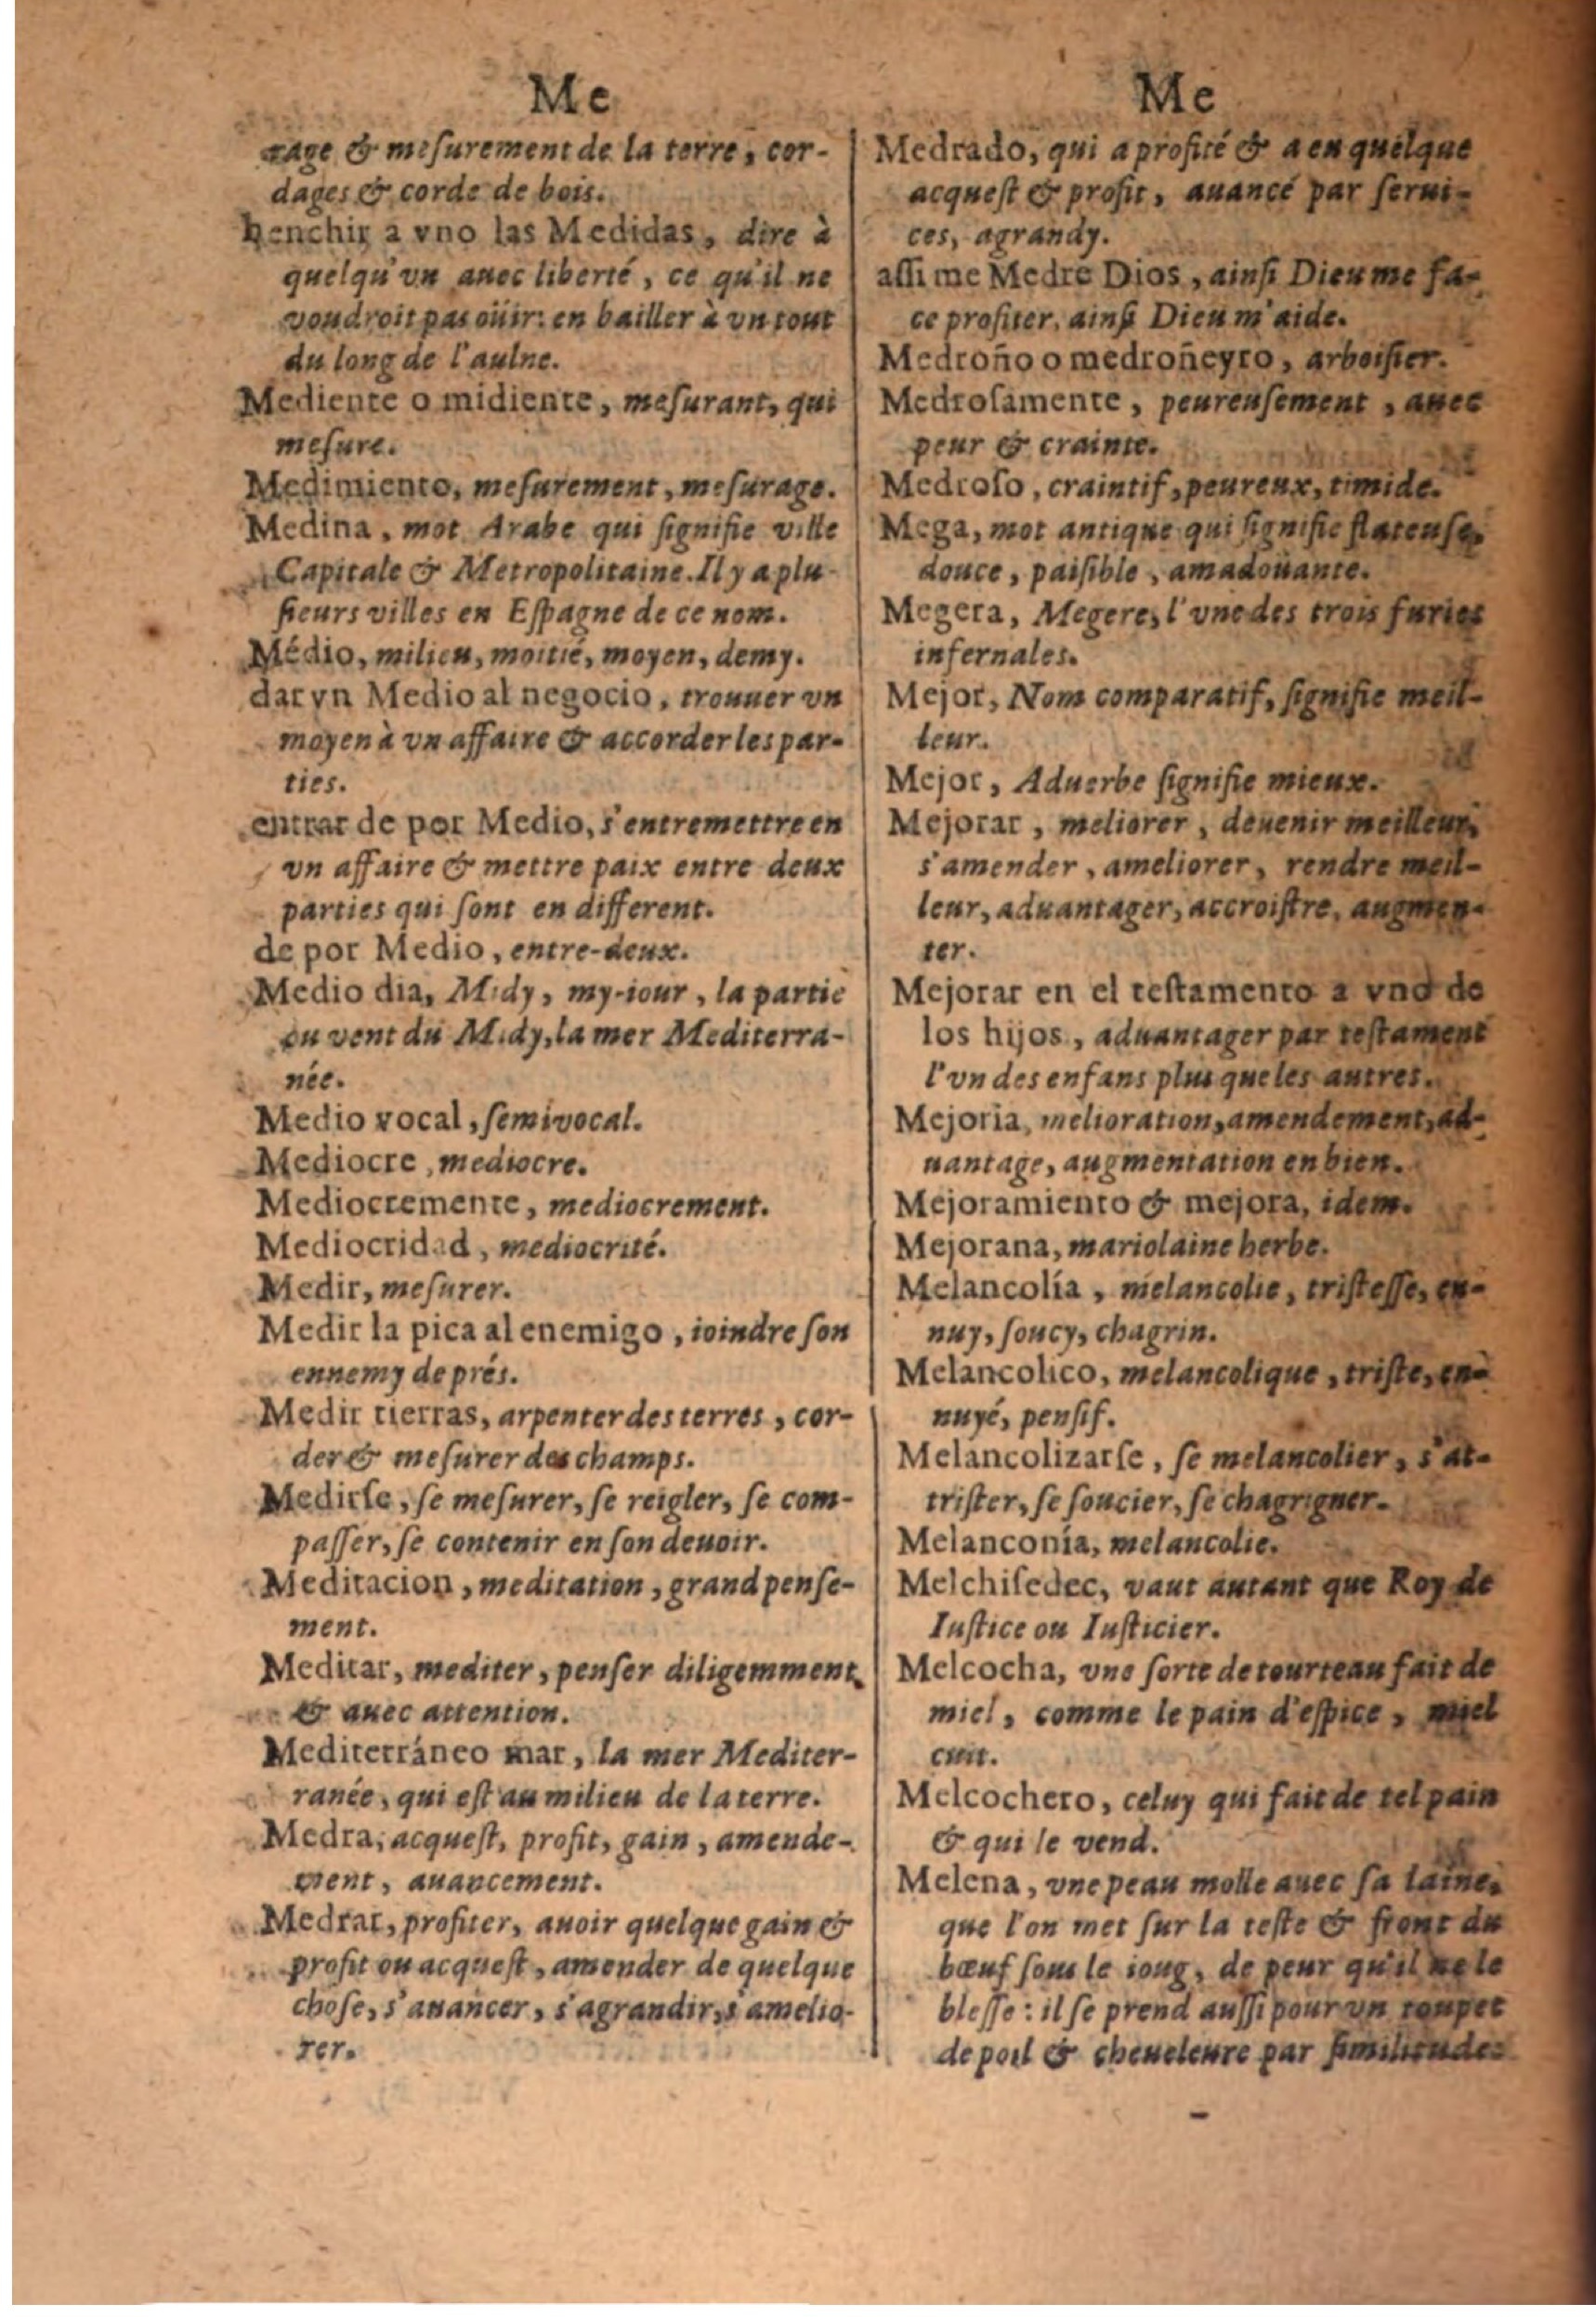 Me
rage & meſurement de la terre, cor-
dages & corde de bois.
henchir a vno las Medidas, dire à
quelqu'vn auec liberté, ce qu'il ne
voudroit pas oüir: en bailler à vn tout
du long de l'aulne.
Mediente o midiente, meſurant, qui
meſure.
Medimiento, meſurement, meſurage.
Medina, mot Arabe qui ſignifie ville
Capitale & Metropolitaine. Il y a plu-
ſieurs villes en Eſpagne de ce nom.
Médio, milieu, moitié, moyen, demy.
dar vn Medio al negocio, trouuer vn
moyen à vn affaire & accorder les par-
ties.
entrar de por Medio, s'entremettre en
vn affaire & mettre paix entre deux
parties qui ſont en different.
de por Medio, entre-deux.
Medio dia, Midy, my-iour, la partie
ou vent du Midy, la mer Mediterra-
née.
Medio vocal, ſemivocal.
Mediocre, mediocre.
Mediocremente, mediocrement.
Mediocridad, mediocrité.
Medir, meſurer.
Medir la pica al enemigo, ioindre ſon
ennemy de prés.
Medir tierras, arpenter des terres, cor-
der & meſurer des champs.
Medirſe, ſe meſurer, ſe reigler, ſe com-
paſſer, ſe contenir en ſon deuoir.
Meditacion, meditation, grand penſe-
ment.
Meditar, mediter, penſer diligemment
& auec attention.
Mediterráneo mar, la mer Mediter-
ranée, qui eſt au milieu de la terre.
Medra, acqueſt, profit, gain, amende-
ment, auancement.
Medrar, profiter, auoir quelque gain &
profit ou acqueſt, amender de quelque
choſe, s'auancer, s'agrandir, s'amelio-
rer.
Me
Medrado, qui a profité & a eu quelque
acqueſt & profit, auancé par ſerui-
ces, agrandy.
aſſi me Medre Dios, ainſi Dieu me fa-
ce profiter, ainſi Dieu m'aide.
Medroño o medroñeyro, arboiſier.
Medroſamente, peureuſement, auec
peur & crainte.
Medroſo, craintif, peureux, timide.
Mega, mot antique qui ſignifie flateuſe,
douce, paiſible, amadoüante.
Megera, Megere, l'vne des trois furies
infernales.
Mejor, Nom comparatif, ſignifie meil-
leur.
Mejor, Aduerbe ſignifie mieux.
Mejorar, meliorer, deuenir meilleur,
s'amender, ameliorer, rendre meil-
leur, aduantager, accroiſtre, augmen-
ter.
Mejorar en el teſtamento a vno de
los hijos, aduantager par teſtament
l'vn des enfans plus que les autres.
Mejoria, melioration, amendement, ad-
uantage, augmentation en bien.
Mejoramiento & mejora, idem.
Mejorana, mariolaine herbe.
Melancolía, melancolie, triſteſſe, en-
nuy, ſoucy, chagrin.
Melancolico, melancolique, triſte, en-
nuyé, penſif.
Melancolizarſe, ſe melancolier, s'at-
triſter, ſe ſoucier, ſe chagrigner.
Melanconía, melancolie.
Melchiſedec, vaut autant que Roy de
Iuſtice ou Iuſticier.
Melcocha, vne ſorte de tourteau fait de
miel, comme le pain d'eſpice, miel
cuit.
Melcochero, celuy qui fait de tel pain
& qui le vend.
Melena, vne peau molle auec ſa laine,
que l'on met ſur la teſte & front du
bœuf ſous le ioug, de peur qu'il ne le
bleſſe: il ſe prend auſſi pour vn toupet
de poil & cheueleure par ſimilitude: